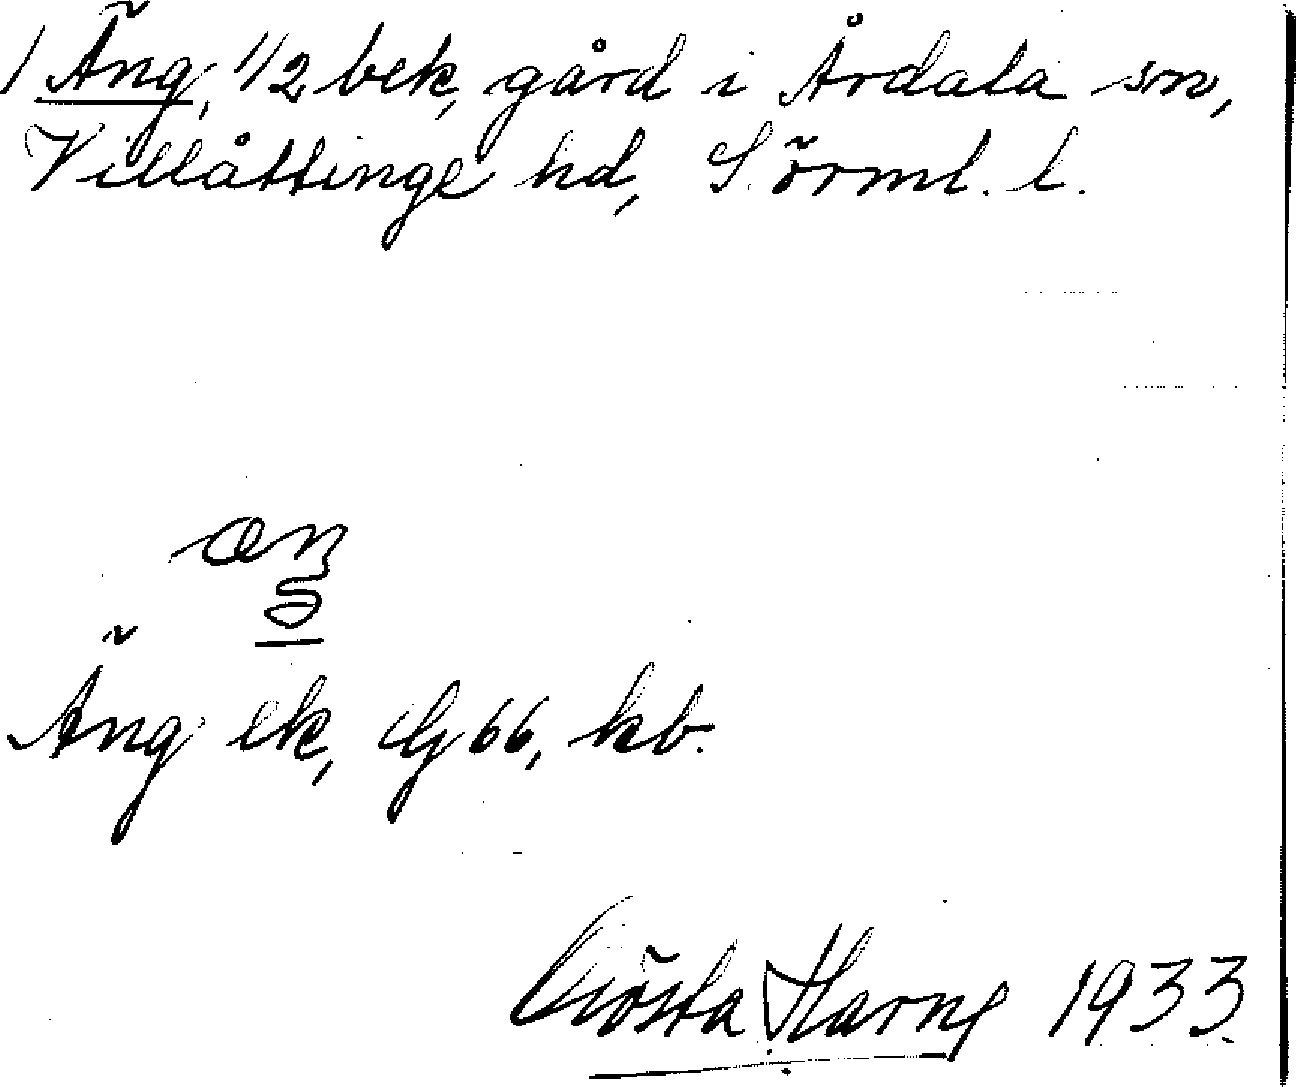 1 Äng, 1/2 bek, gård i Årdala sn,
Villåttinge hd, Sörml. l.
Äng ek, G 66, kb.
Gösta 1933